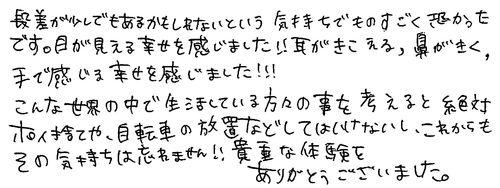 段差が少しでもあるかもしれないという気持ちでものすごく恐かった
です。目が見える幸せを感じました!!耳がきこえる,鼻がきく,
手で感じる幸せを感じました!!!
こんな世界の中で生活している方々の事を考えると絶対
ポイ捨てや、自転車の放置などしてはいけないし、これからも
その気持ちは忘れません!!貴重な体験を
ありがとうございました。